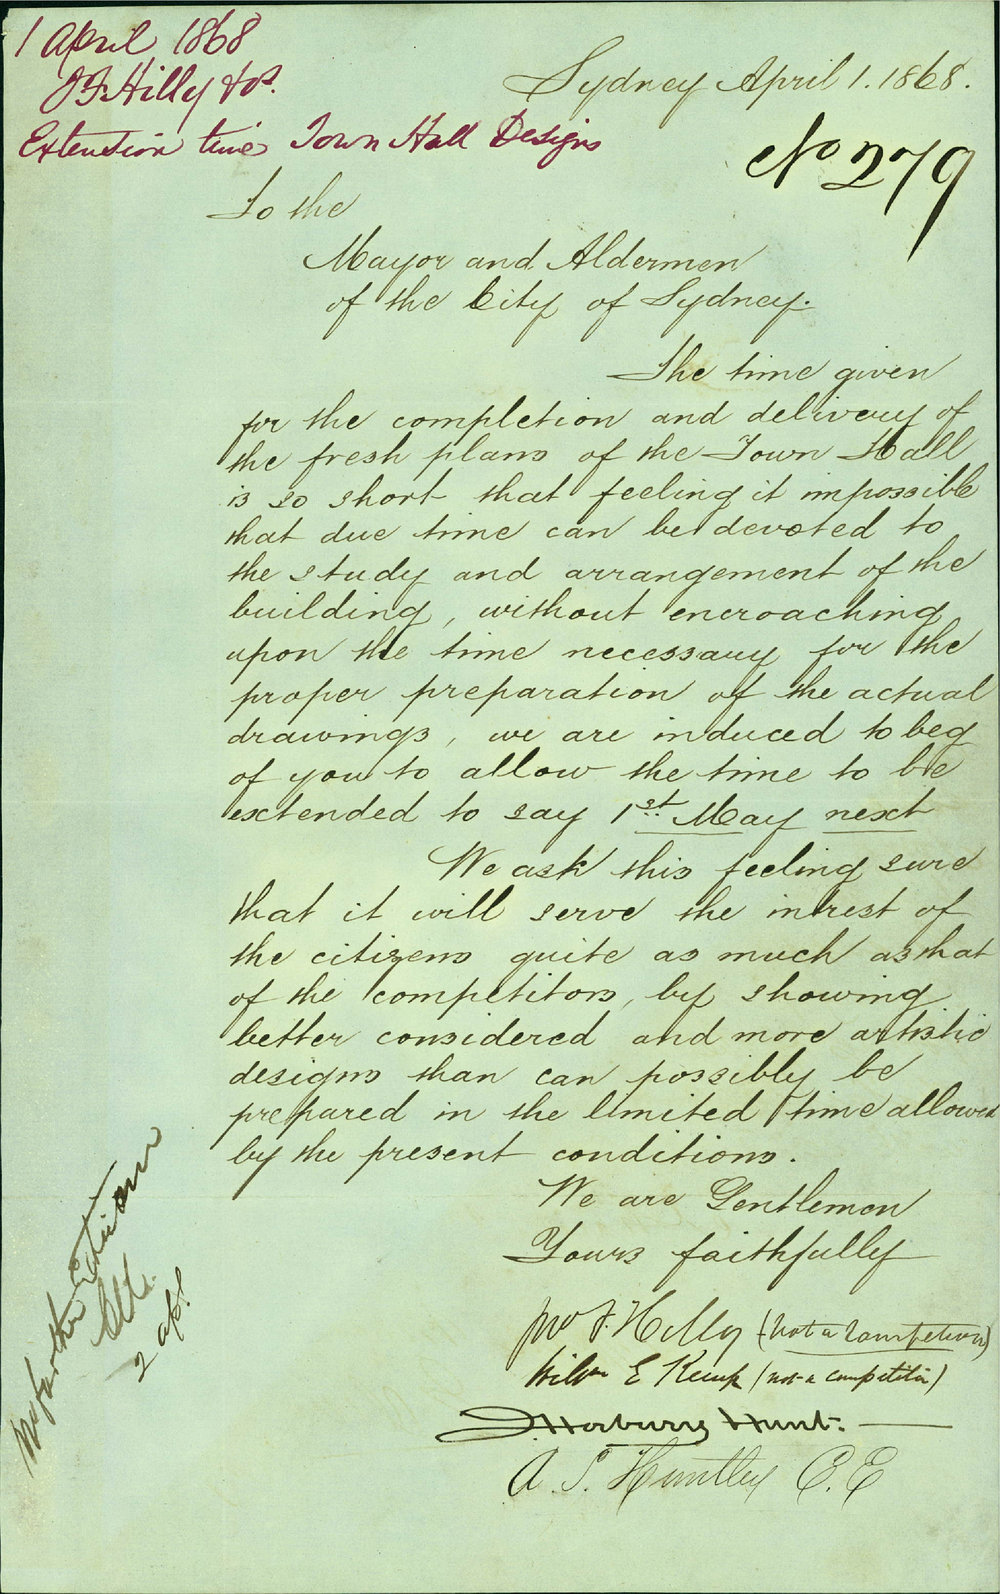 1 April 1868
J F Hilly & os.
Extension time Town Hall Designs
Sydney April 1. 1868.
No 279
To the
Mayor and Aldermen
of the City of Sydney.
The time given
for the completion and delivery of
the fresh plans of the Town Hall
is so short that feeling it impossible
that due time can be devoted to
the study and arrangement of the
building, without encroaching
upon the time necessary for the
proper preparation of the actual
drawings, we are induced to beg
of you to allow the time to be
extended to say 1st May next
We ask this feeling sure
that it will serve the intrest of
the citizens quite as much as that
of the competitors, by showing
better considered and more artistic
designs than can possibly be
prepared in the limited time allowed
by the present conditions.
We are Gentlemen
Yours faithfully
Jno F. Hilly (not a competitor)
Willm E Kemp (not a competitor)
J. Horbury Hunt.
A. S. Huntley C.E
No further
2 apl